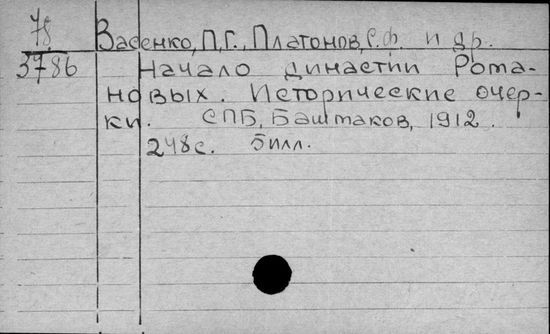 78
3786
Васенко, П.Г., Платонов, С.Ф. и др.
Начало династии Рома-
новых. Исторические очер-
ки. СПБ, Башмаков, 1912.
248с. 5илл.